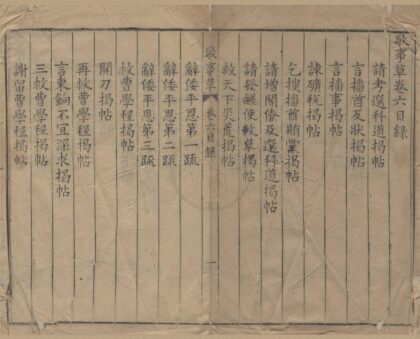 敬事草卷六目錄
請考選科道揭帖
言播酋反狀揭帖
言播事揭帖
諫礦稅揭帖
乞搜播酋賄黨揭帖
請增閣僚及選科道揭帖
請發䤋使敕草揭帖
救天下災荒揭帖
敬事草 卷六目錄 一
辭倭平恩第一疏
辭倭平恩第二疏
辭倭平恩第三疏
救曹學程揭帖
開刀揭帖
再救曹學程揭帖
言東餉不宜深求揭帖
三救曹學程揭帖
謝留曹學程揭帖